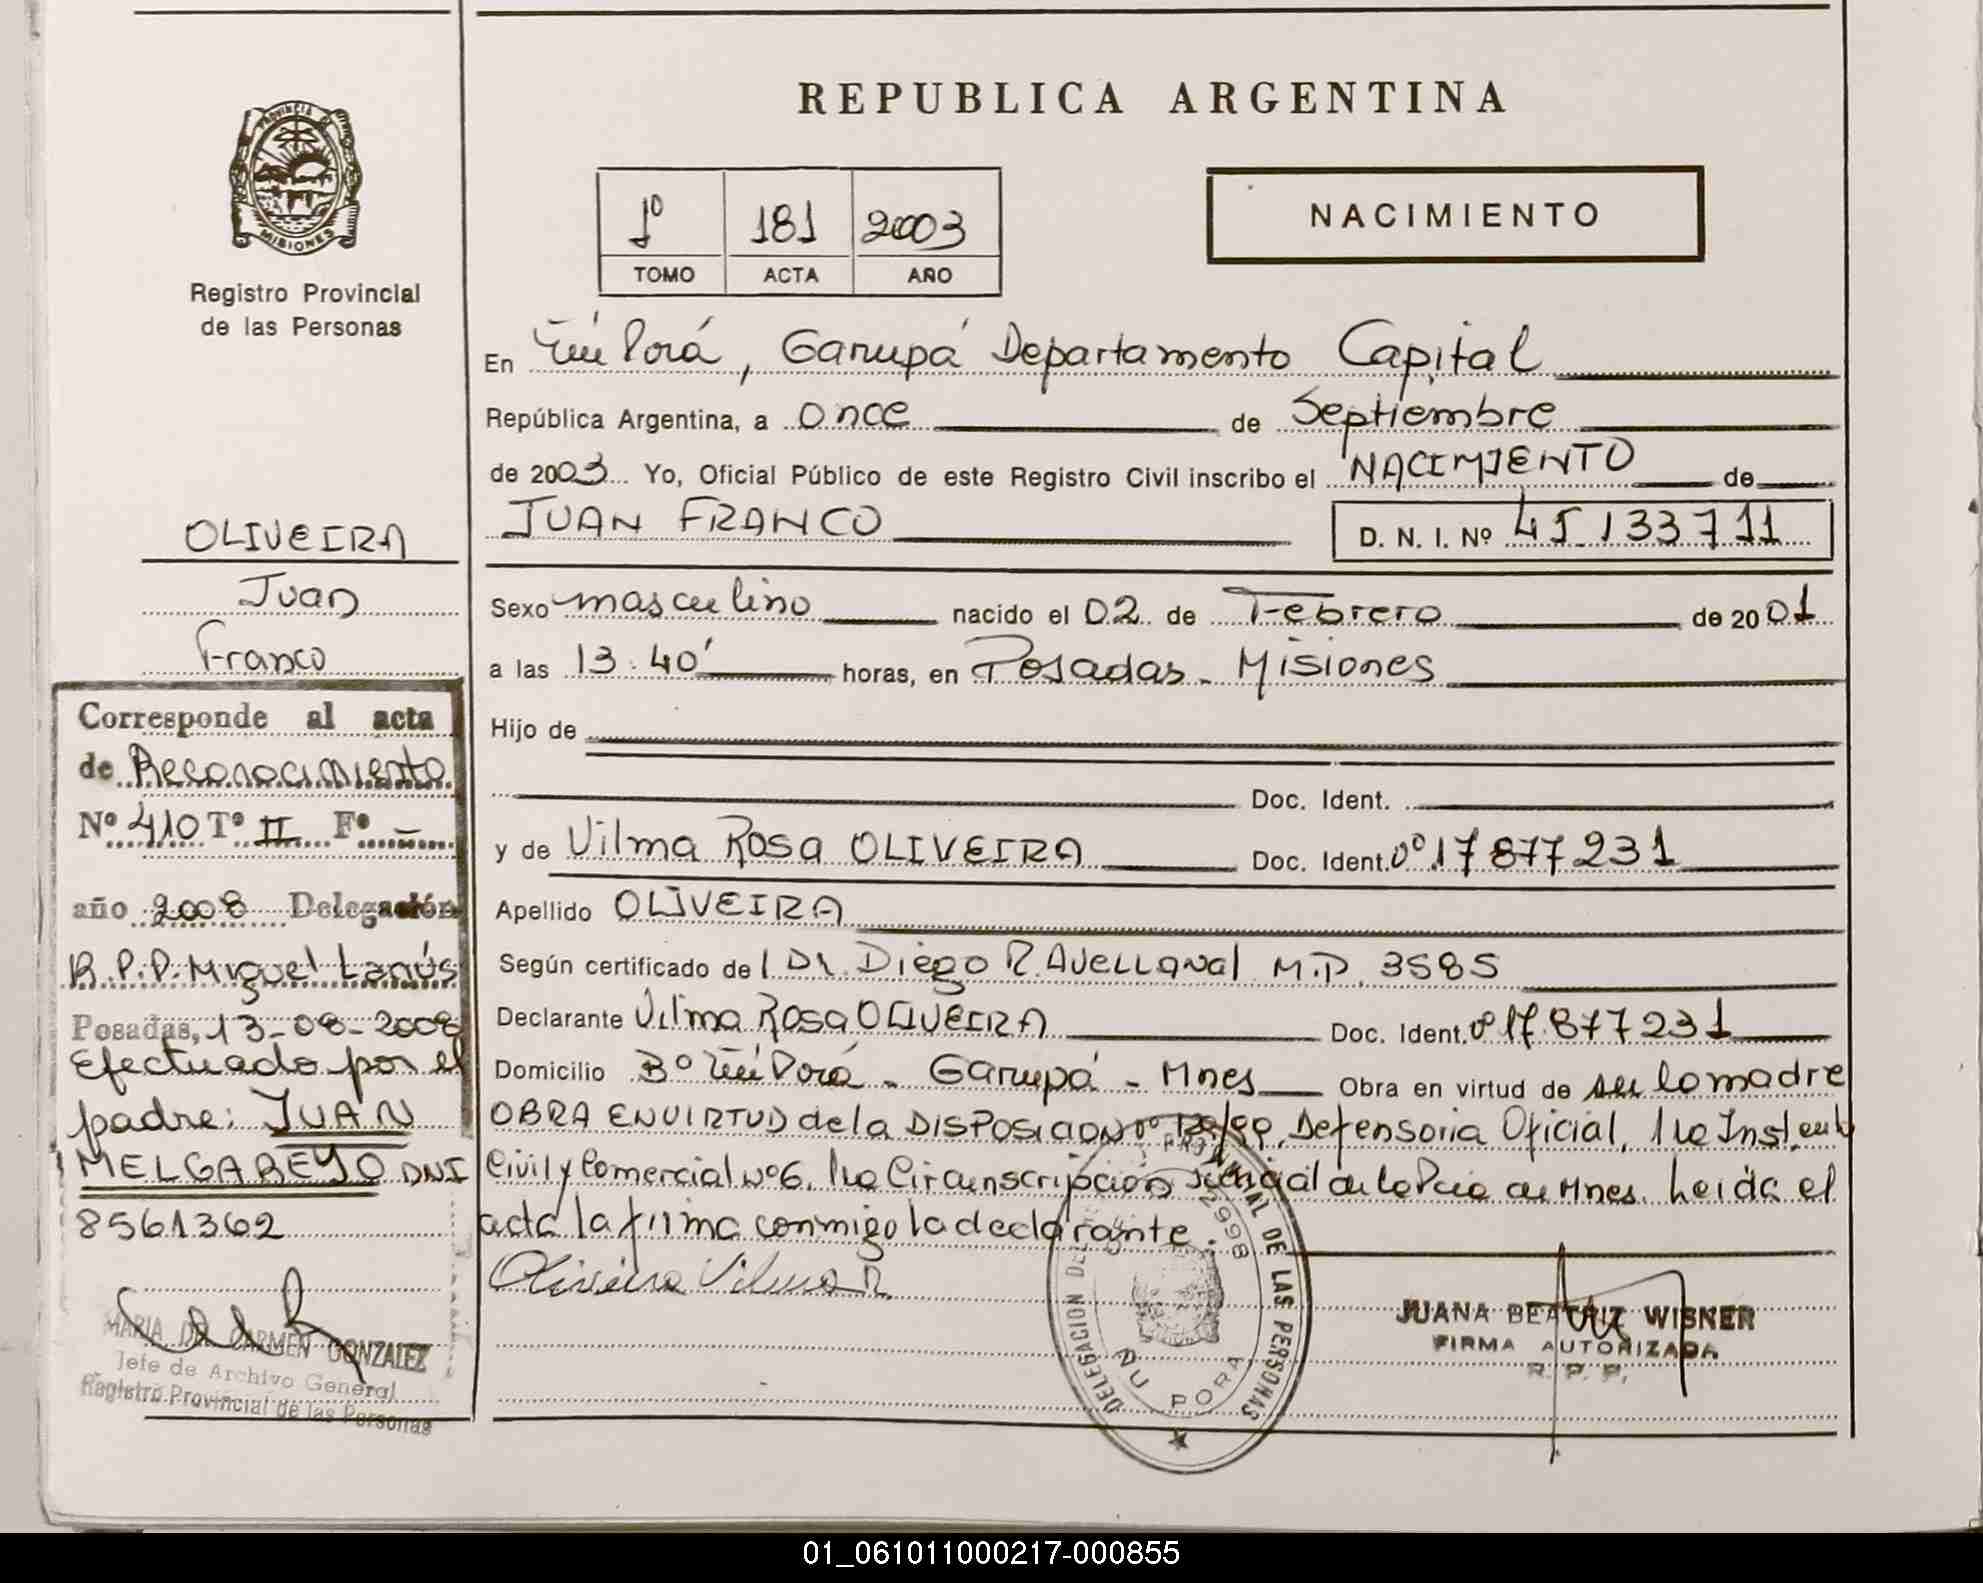 REPUBLICA ARGENTINA
PROVINCIA DE
MISIONES
Registro Provincial
de las Personas
1º 181 2003
TOMO ACTA AÑO
NACIMIENTO
En Ñú Porá, Garupá Departamento Capital
República Argentina, a once de Septiembre
de 2003 Yo, Oficial Público de este Registro Civil inscribo el NACIMIENTO de
JUAN FRANCO D. N. I. Nº 45.133.711
Sexo masculino nacido el 02 de Febrero de 2001
a las 13:40' horas, en Posadas - Misiones
Hijo de
Doc. Ident.
y de Vilma Rosa OLIVEIRA Doc. Ident. nº 17 877 231
Apellido OLIVEIRA
Según certificado de l Dr. Diego R. Avellanal M.P. 3585
Declarante Vilma Rosa OLIVEIRA Doc. Ident. nº 17.877 231
Domicilio Bº Ñú Porá - Garupá - Mnes Obra en virtud de ser la madre
OBRA EN VIRTUD de la DISPOSICION nº /99, Defensoria Oficial, 1ra Inst. en lo
Civil y Comercial nº 6, 1ra Circunscripción Judicial de la Pcia de Mnes. Leida el
acta la firma conmigo la declarante.
Oliveira Vilma R
DELEGACION DEL REGISTRO PROVINCIAL DE LAS PERSONAS
2998
ÑU PORA
JUANA BEATRIZ WISNER
FIRMA AUTORIZADA
R. P. P.
OLIVEIRA
Juan
Franco
Corresponde al acta
de Reconocimiento
Nº 410 Tº II Fº -
año 2008 Delegación
R.P.P. Miguel Lanús
Posadas, 13-08-2008
Efectuado por el
padre: JUAN
MELGAREJO DNI
8561362
MARIA DEL CARMEN GONZALEZ
Jefe de Archivo General
Registro Provincial de las Personas
01_061011000217-000855